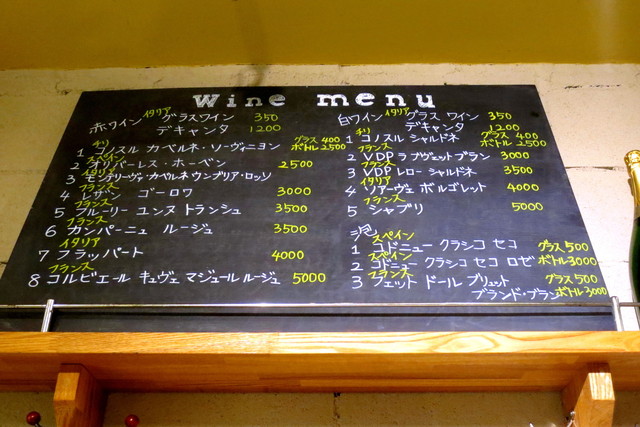 wine menu
イタリア
赤ワイン グラスワイン 350
デキャンタ 1200
チリ
1 コノスル カベルネ・ソーヴィニヨン グラス 400 ボトル 2500
スペイン
2 オリバーレス・ホーベン 2500
イタリア
3 モンテリーヴァ・カベルネ ウンブリア・ロッソ
フランス
4 レザン ゴーロワ 3000
フランス
5 フルーリー ユンヌ トランシュ 3500
フランス
6 カンパーニュ ルージュ 3500
イタリア
7 フラッパート 4000
フランス
8 コルビエール キュヴェ マジュール ルージュ 5000
イタリア
白ワイン グラス ワイン 350
デキャンタ 1200
チリ
1 コノスル シャルドネ グラス 400 ボトル 2500
フランス
2 VDP ラプヴェット ブラン 3000
フランス
3 VDP レロー シャルドネ 3500
イタリア
4 ソアーヴェ ボルゴレット 4000
フランス
5 シャブリ 5000
泡
スペイン
1 コドニュー クラシコ セコ グラス 500
スペイン
2 コドニュー クラシコ セコ ロゼ ボトル 3000
フランス
3 フェット ドール ブリュット グラス 500
ブランド・ブラン ボトル 3000